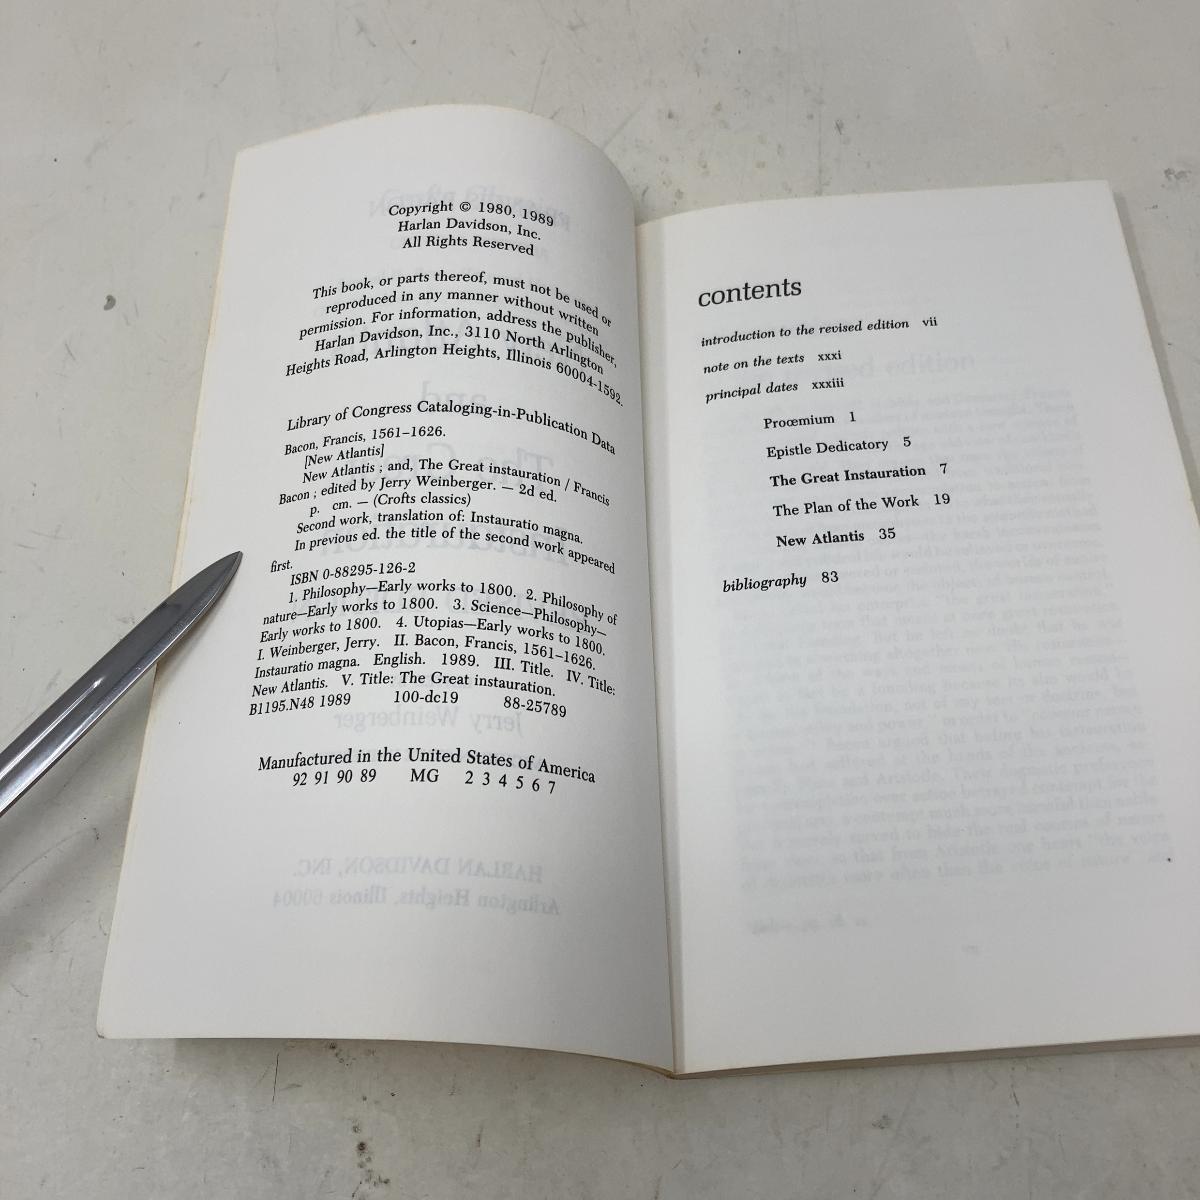 Copyright © 1980, 1989
Harlan Davidson, Inc.
All Rights Reserved
This book, or parts thereof, must not be used or
reproduced in any manner without written
permission. For information, address the publisher,
Harlan Davidson, Inc., 3110 North Arlington
Heights Road, Arlington Heights, Illinois 60004-1592.
Library of Congress Cataloging-in-Publication Data
Bacon, Francis, 1561–1626.
[New Atlantis]
New Atlantis ; and, The Great instauration / Francis
Bacon ; edited by Jerry Weinberger. — 2d ed.
p. cm. — (Crofts classics)
Second work, translation of: Instauratio magna.
In previous ed. the title of the second work appeared
first.
ISBN 0-88295-126-2
1. Philosophy—Early works to 1800. 2. Philosophy of
nature—Early works to 1800. 3. Science—Philosophy—
Early works to 1800. 4. Utopias—Early works to 1800.
I. Weinberger, Jerry. II. Bacon, Francis, 1561–1626.
Instauratio magna. English. 1989. III. Title. IV. Title:
New Atlantis. V. Title: The Great instauration.
B1195.N48 1989 100-dc19 88-25789
Manufactured in the United States of America
92 91 90 89 MG 2 3 4 5 6 7
contents
introduction to the revised edition vii
note on the texts xxxi
principal dates xxxiii
Proœmium 1
Epistle Dedicatory 5
The Great Instauration 7
The Plan of the Work 19
New Atlantis 35
bibliography 83